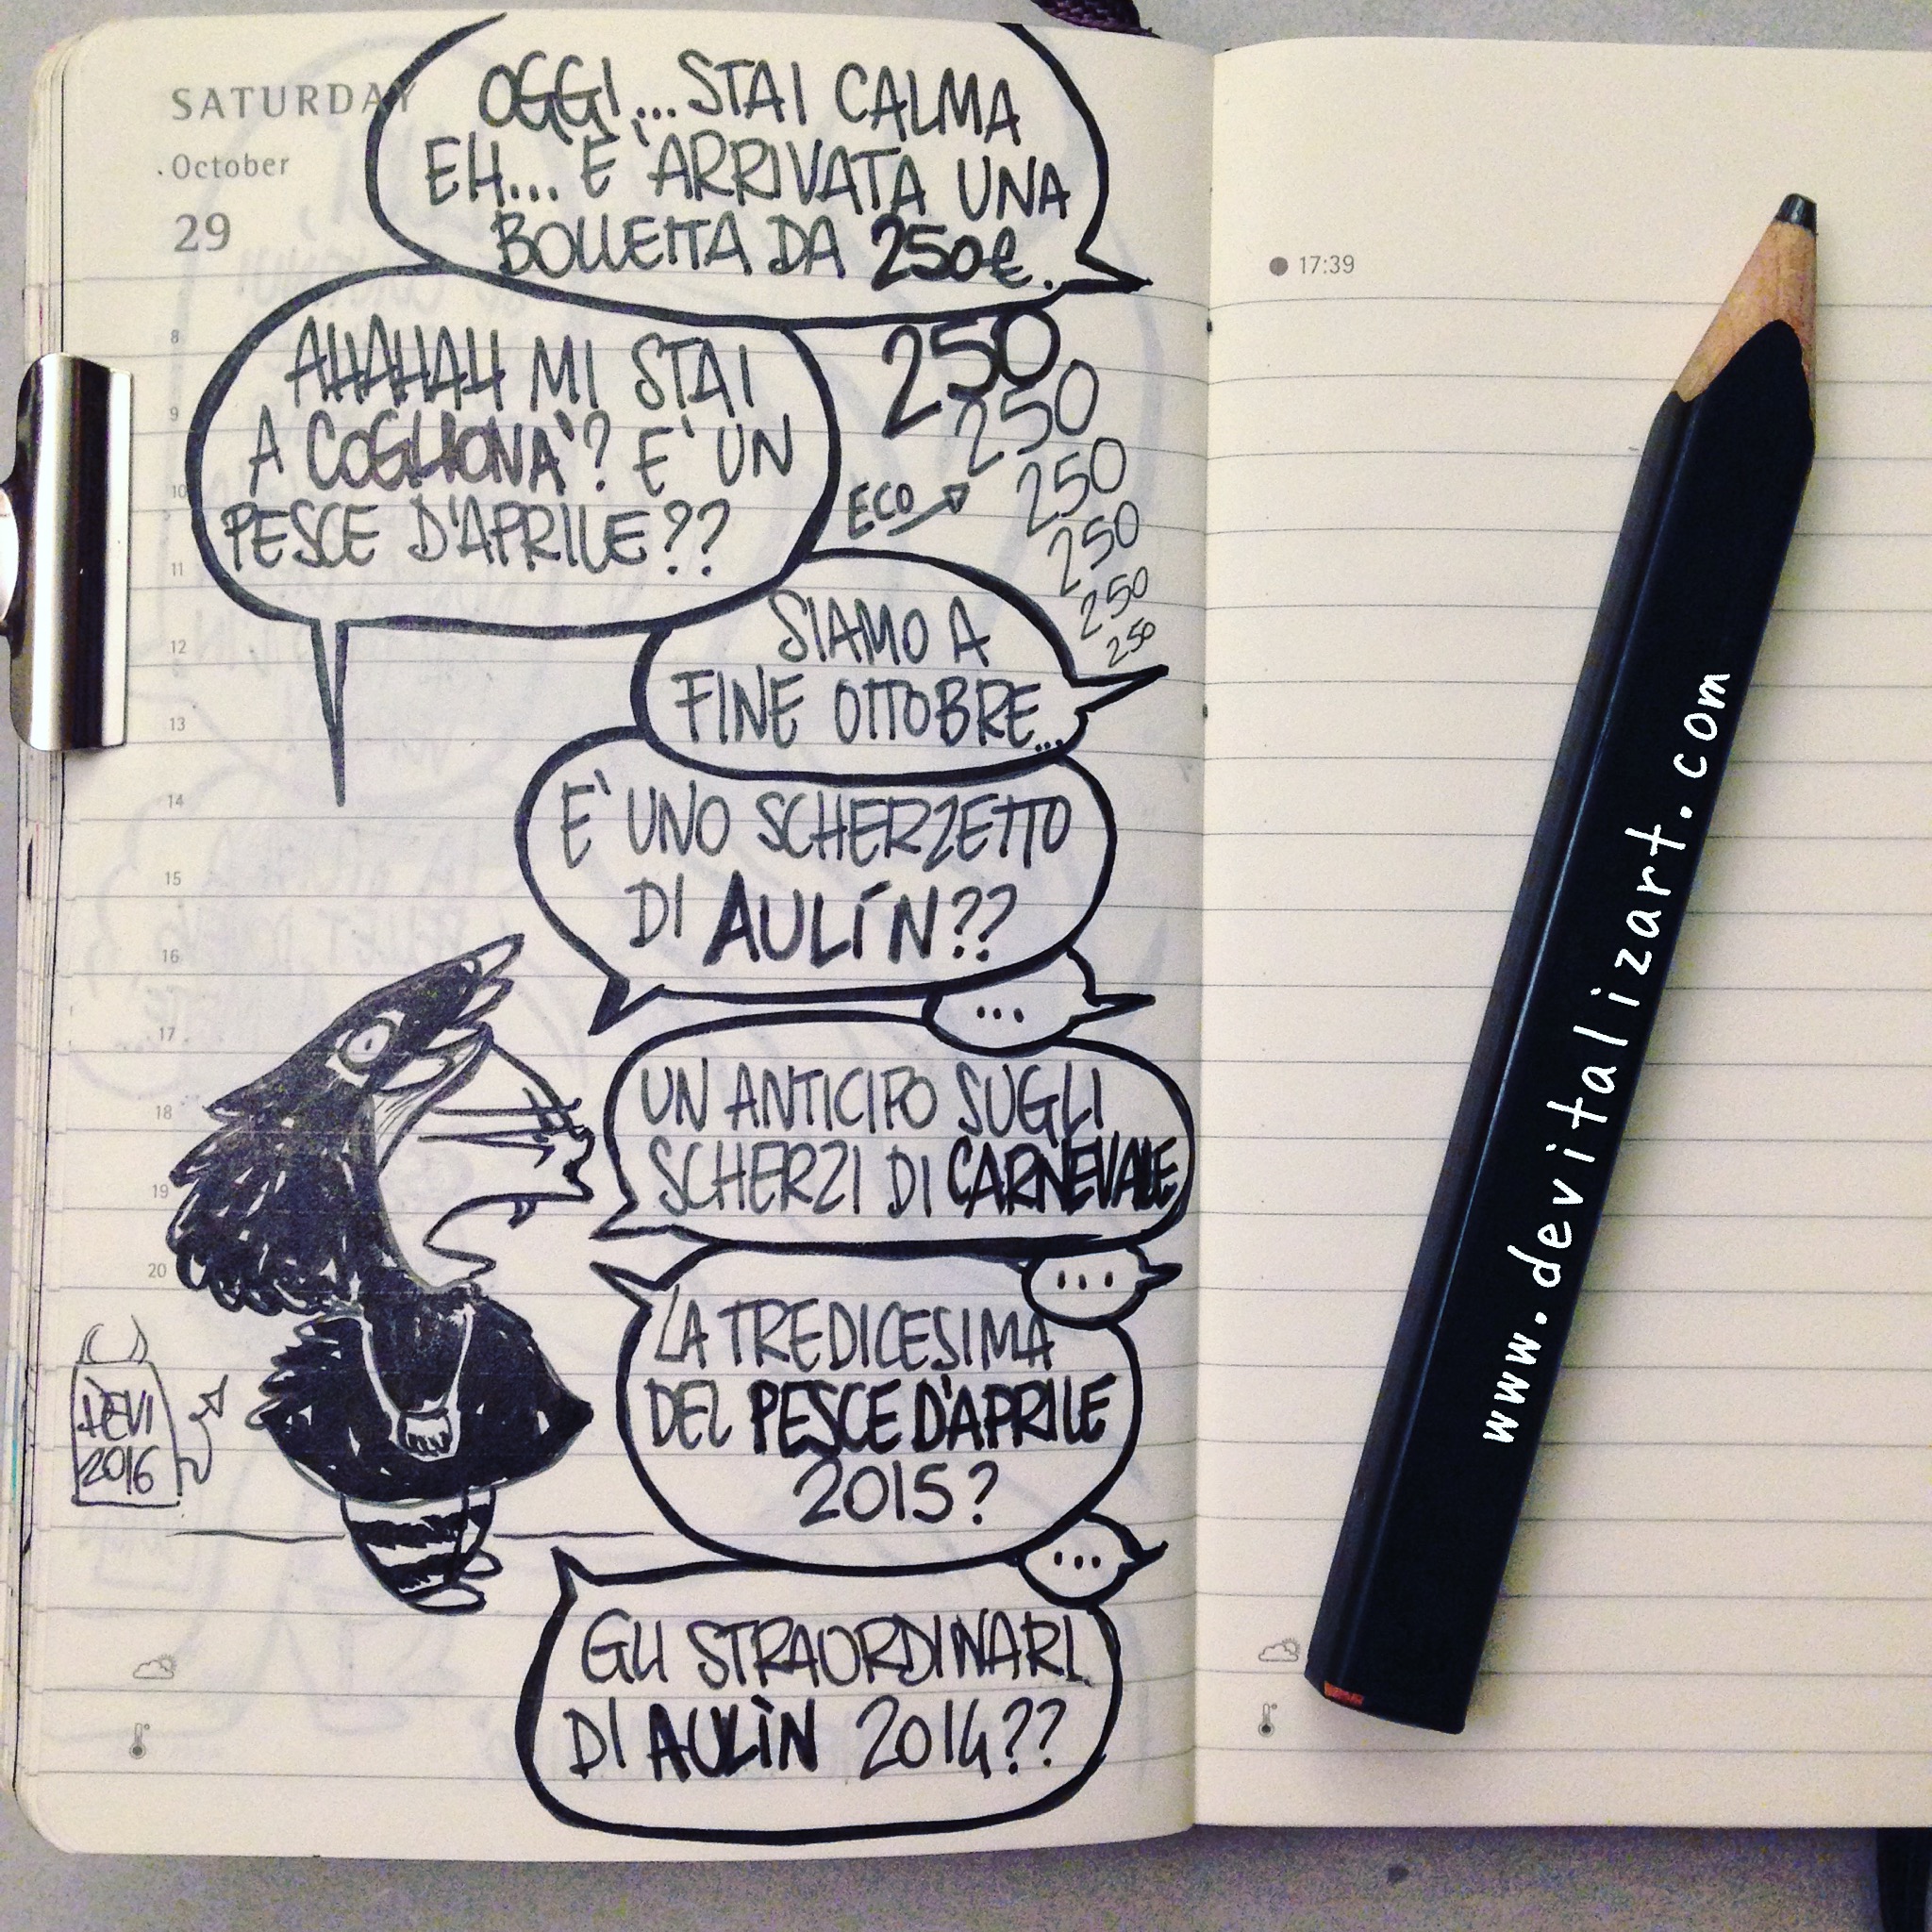 SATURDAY
October
29
OGGI...STAI CALMA
EH... E' ARRIVATA UNA
BOLLETTA DA 250€.
AHAHAH MI STAI
A COGLIONA'? E' UN
PESCE D'APRILE??
250
250
250
250
250
250
ECO
SIAMO A
FINE OTTOBRE...
E' UNO SCHERZETTO
DI AULÍN??
...
UN ANTICIPO SUGLI
SCHERZI DI CARNEVALE
...
LA TREDICESIMA
DEL PESCE D'APRILE
2015?
...
GLI STRAORDINARI
DI AULÌN 2014??
DEVI
2016
8
9
10
11
12
13
14
15
16
17
18
19
20
17:39
www.devitalizart.com